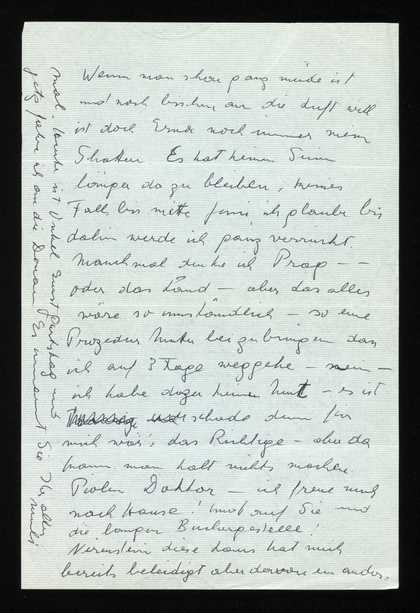 Wenn man schon ganz müde ist
und noch bisschen an die Luft will
ist doch Ernst noch immer mein
Es hat keinen Sinn
länger da zu bleiben, keines
Falls bis mitte Juni ich glaube bis
dahin werde ich ganz verrückt.
Manchmal denke ich Prag - -
oder das Land - aber das alles
wäre so umständlich - so eine
Prozedur Mutter beizubringen dass
ich auf 3 Tage weggehe - nein -
ich habe dazu keinen Mut - es ist
schade denn für
mich wär's das Richtige - aber da
kann man halt nichts machen.
Doktor - ich freue mich
nach Hause! und auf Sie und
die langen Büchergestelle!
diese Laus hat mich
bereits beleidigt aber davon ein ander-
mal. heute ist Onkel und
jetzt fahre ich an die Donau. Es umarmt Sie Ihr altes